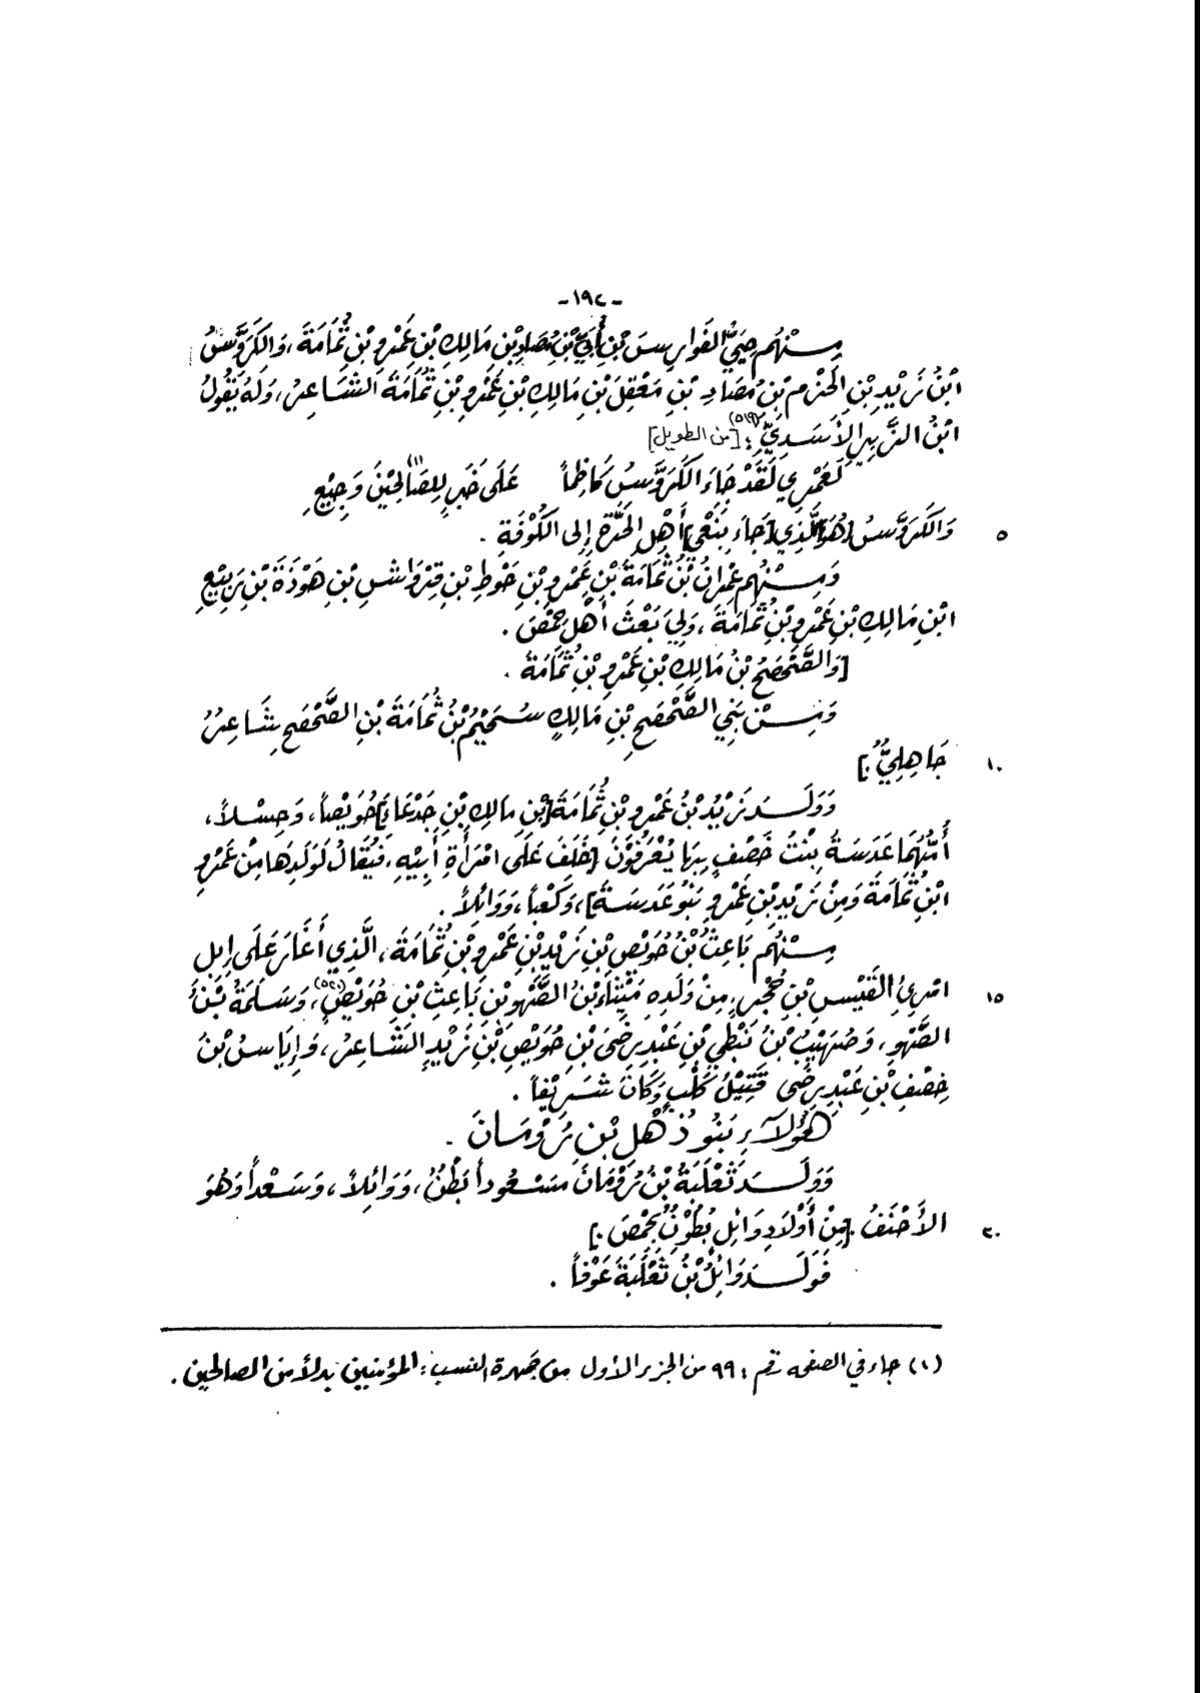 -١٩٢-
مِنْهُم حَيِيُّ الفَوارِسِ بْنِ أُبَيِّ بْنِ مَصَادِ بْنِ مَالِكِ بْنِ عَمْرِو بْنِ ثُمَامَةَ، وَالكَرَوَّسُ
ابْنُ زَيْدِ بْنِ الحَزْمِ بْنِ مَصَادِ بْنِ مَعْقِلِ بْنِ مَالِكِ بْنِ عَمْرِو بْنِ ثُمَامَةَ الشَّاعِرُ، وَلَهُ يَقُولُ
ابْنُ الزَّبِيرِ الأَسَدِيِّ(٥١٩): [من الطويل]
لَعَمْرِي لَقَدْ جَاءَ الكَرَوَّسُ كَاظِماً عَلَى خَبَرٍ لِلصَّالِحِينَ(١) وَجِيْعِ
٥ وَالكَرَوَّسُ [هُوَ] الَّذِي [جَاءَ بِنَعْيِ] أَهْلِ الحَرَّةِ إِلى الكُوْفَةِ.
وَمِنْهُم عِمْرَانُ بْنُ ثُمَامَةَ بْنِ عَمْرِو بْنِ حَوْطِ بْنِ قِرْوَاشِ بْنِ هَوْذَةَ بْنِ رَبِيْعِ
ابْنِ مَالِكِ بْنِ عَمْرِو بْنِ ثُمَامَةَ، وَلِيَ بَعْثَ أَهْلِ حِمْصَ.
[وَالصَّحْصَحُ بْنُ مَالِكِ بْنِ عَمْرِو بْنِ ثُمَامَةَ.
وَمِنْ بَنِي الصَّحْصَحِ بْنِ مَالِكٍ سُحَيْمُ بْنُ ثُمَامَةَ بْنِ الصَّحْصَحِ شَاعِرٌ
١٠ جَاهِلِيٌّ.]
وَوَلَدَ زَيْدُ بْنُ عَمْرِو بْنِ ثُمَامَةَ [بْنِ مَالِكِ بْنِ جَدْعَاءَ] حُوَيْصاً، وَحِسْلاً،
أُمُّهُمَا عَدَسَةُ بِنْتُ خَصْفٍ بِهَا يُعْرَفُوْنَ [خَلَفَ عَلَى امْرَأَةِ أَبِيْهِ، فَيُقَالُ لَوَلَدِهَا مِنْ عَمْرِو
ابْنِ ثُمَامَةَ وَمِنْ زَيْدِ بْنِ عَمْرٍو بَنُو عَدَسَةَ]، وَكَعْباً، وَوَائِلاً.
مِنْهُم بَاعِثُ بْنُ حُوَيْصِ بْنِ زَيْدِ بْنِ عَمْرِو بْنِ ثُمَامَةَ، الَّذِي أَغَارَ عَلَى إِبِلِ
١٥ امْرِئِ القَيْسِ بْنِ حُجْرٍ، مِنْ وَلَدِهِ مَيْثَاءُ بْنُ الصَّهْوِ بْنِ بَاعِثِ بْنِ حُوَيْصٍ(٥٢٠)، وَسَلَمَةُ بْنُ
الصَّهْوِ، وَصُهَيْبُ بْنُ نَبْطِيِّ بْنِ عَبْدِ رِضَى بْنِ حُوَيْصِ بْنِ زَيْدٍ الشَّاعِرُ، وَإِيَاسُ بْنُ
خِصْفِ بْنِ عَبْدِ رِضَى قَتِيْلُ كَلْبٍ وَكَانَ شَرِيْفاً.
هَؤُلَاءِ بَنُو ذُهْلِ بْنِ رُوْمَانَ.
وَوَلَدَ ثَعْلَبَةُ بْنُ رُوْمَانَ مَسْعُوداً بَطْنٌ، وَوَائِلاً، وَسَعْداً وَهُوَ
٢٠ الأَحْنَفُ. [مِنْ أَوْلَادِ وَائِلٍ بُطُوْنٌ بِحِمْصَ.]
فَوَلَدَ وَائِلُ بْنُ ثَعْلَبَةَ عَوْفاً.
(١) جاء في الصفحه رقم: ٩٩ من الجزء الأول من جمهرة النسب: المؤمنين بدلاً من الصالحين.